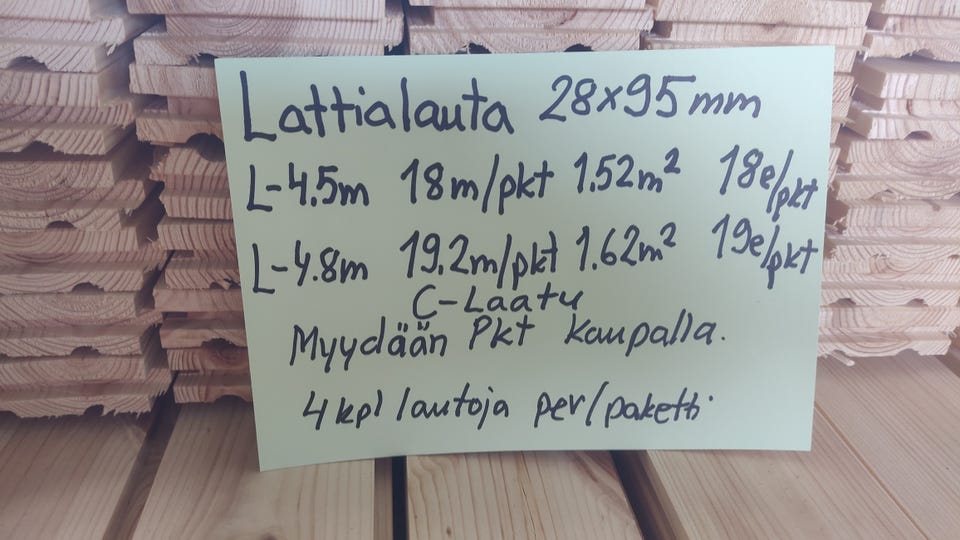 Lattialauta 28x95mm
L-4.5m 18m/pkt 1.52m² 18e/pkt
L-4.8m 19.2m/pkt 1.62m² 19e/pkt
C-Laatu
Myydään Pkt kaupalla.
4 kpl lautoja per/paketti